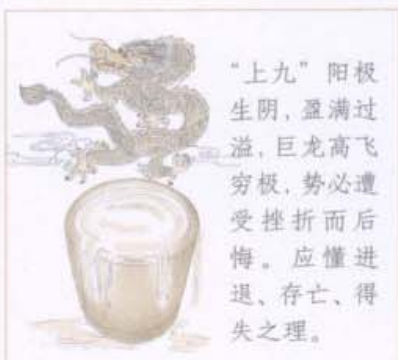 “上九”阳极
生阴，盈满过
溢，巨龙高飞
穷极，势必遭
受挫折而后
悔。应懂进
退、存亡、得
失之理。